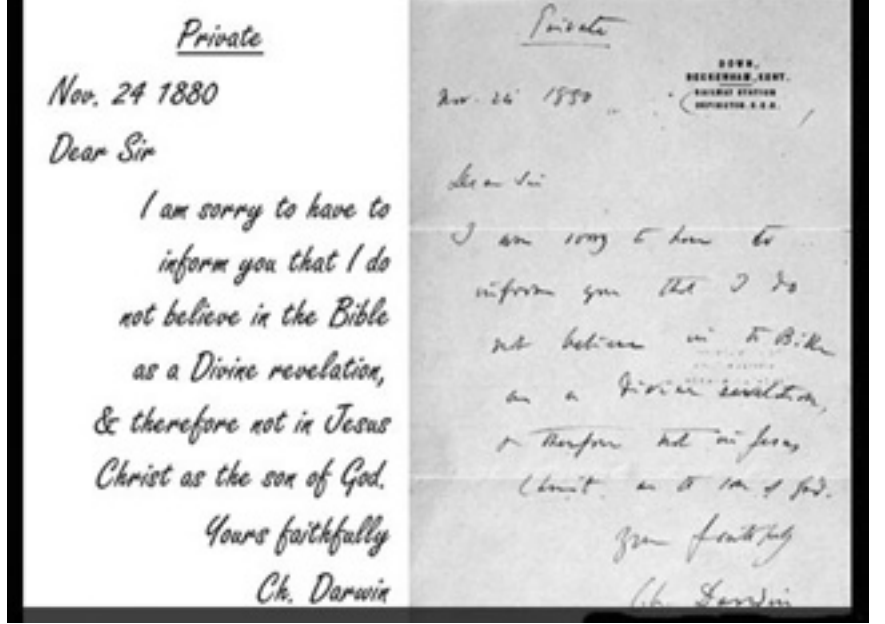 Private
Nov. 24 1880
Dear Sir
I am sorry to have to
inform you that I do
not believe in the Bible
as a Divine revelation,
& therefore not in Jesus
Christ as the son of God.
Yours faithfully
Ch. Darwin
Private
DOWN,
BECKENHAM, KENT.
RAILWAY STATION
ORPINGTON. S.E.R.
Nov. 24 1880
Dear Sir
I am sorry to have to
inform you that I do
not believe in the Bible
as a Divine revelation,
& therefore not in Jesus
Christ as the son of God.
Yours faithfully
Ch. Darwin